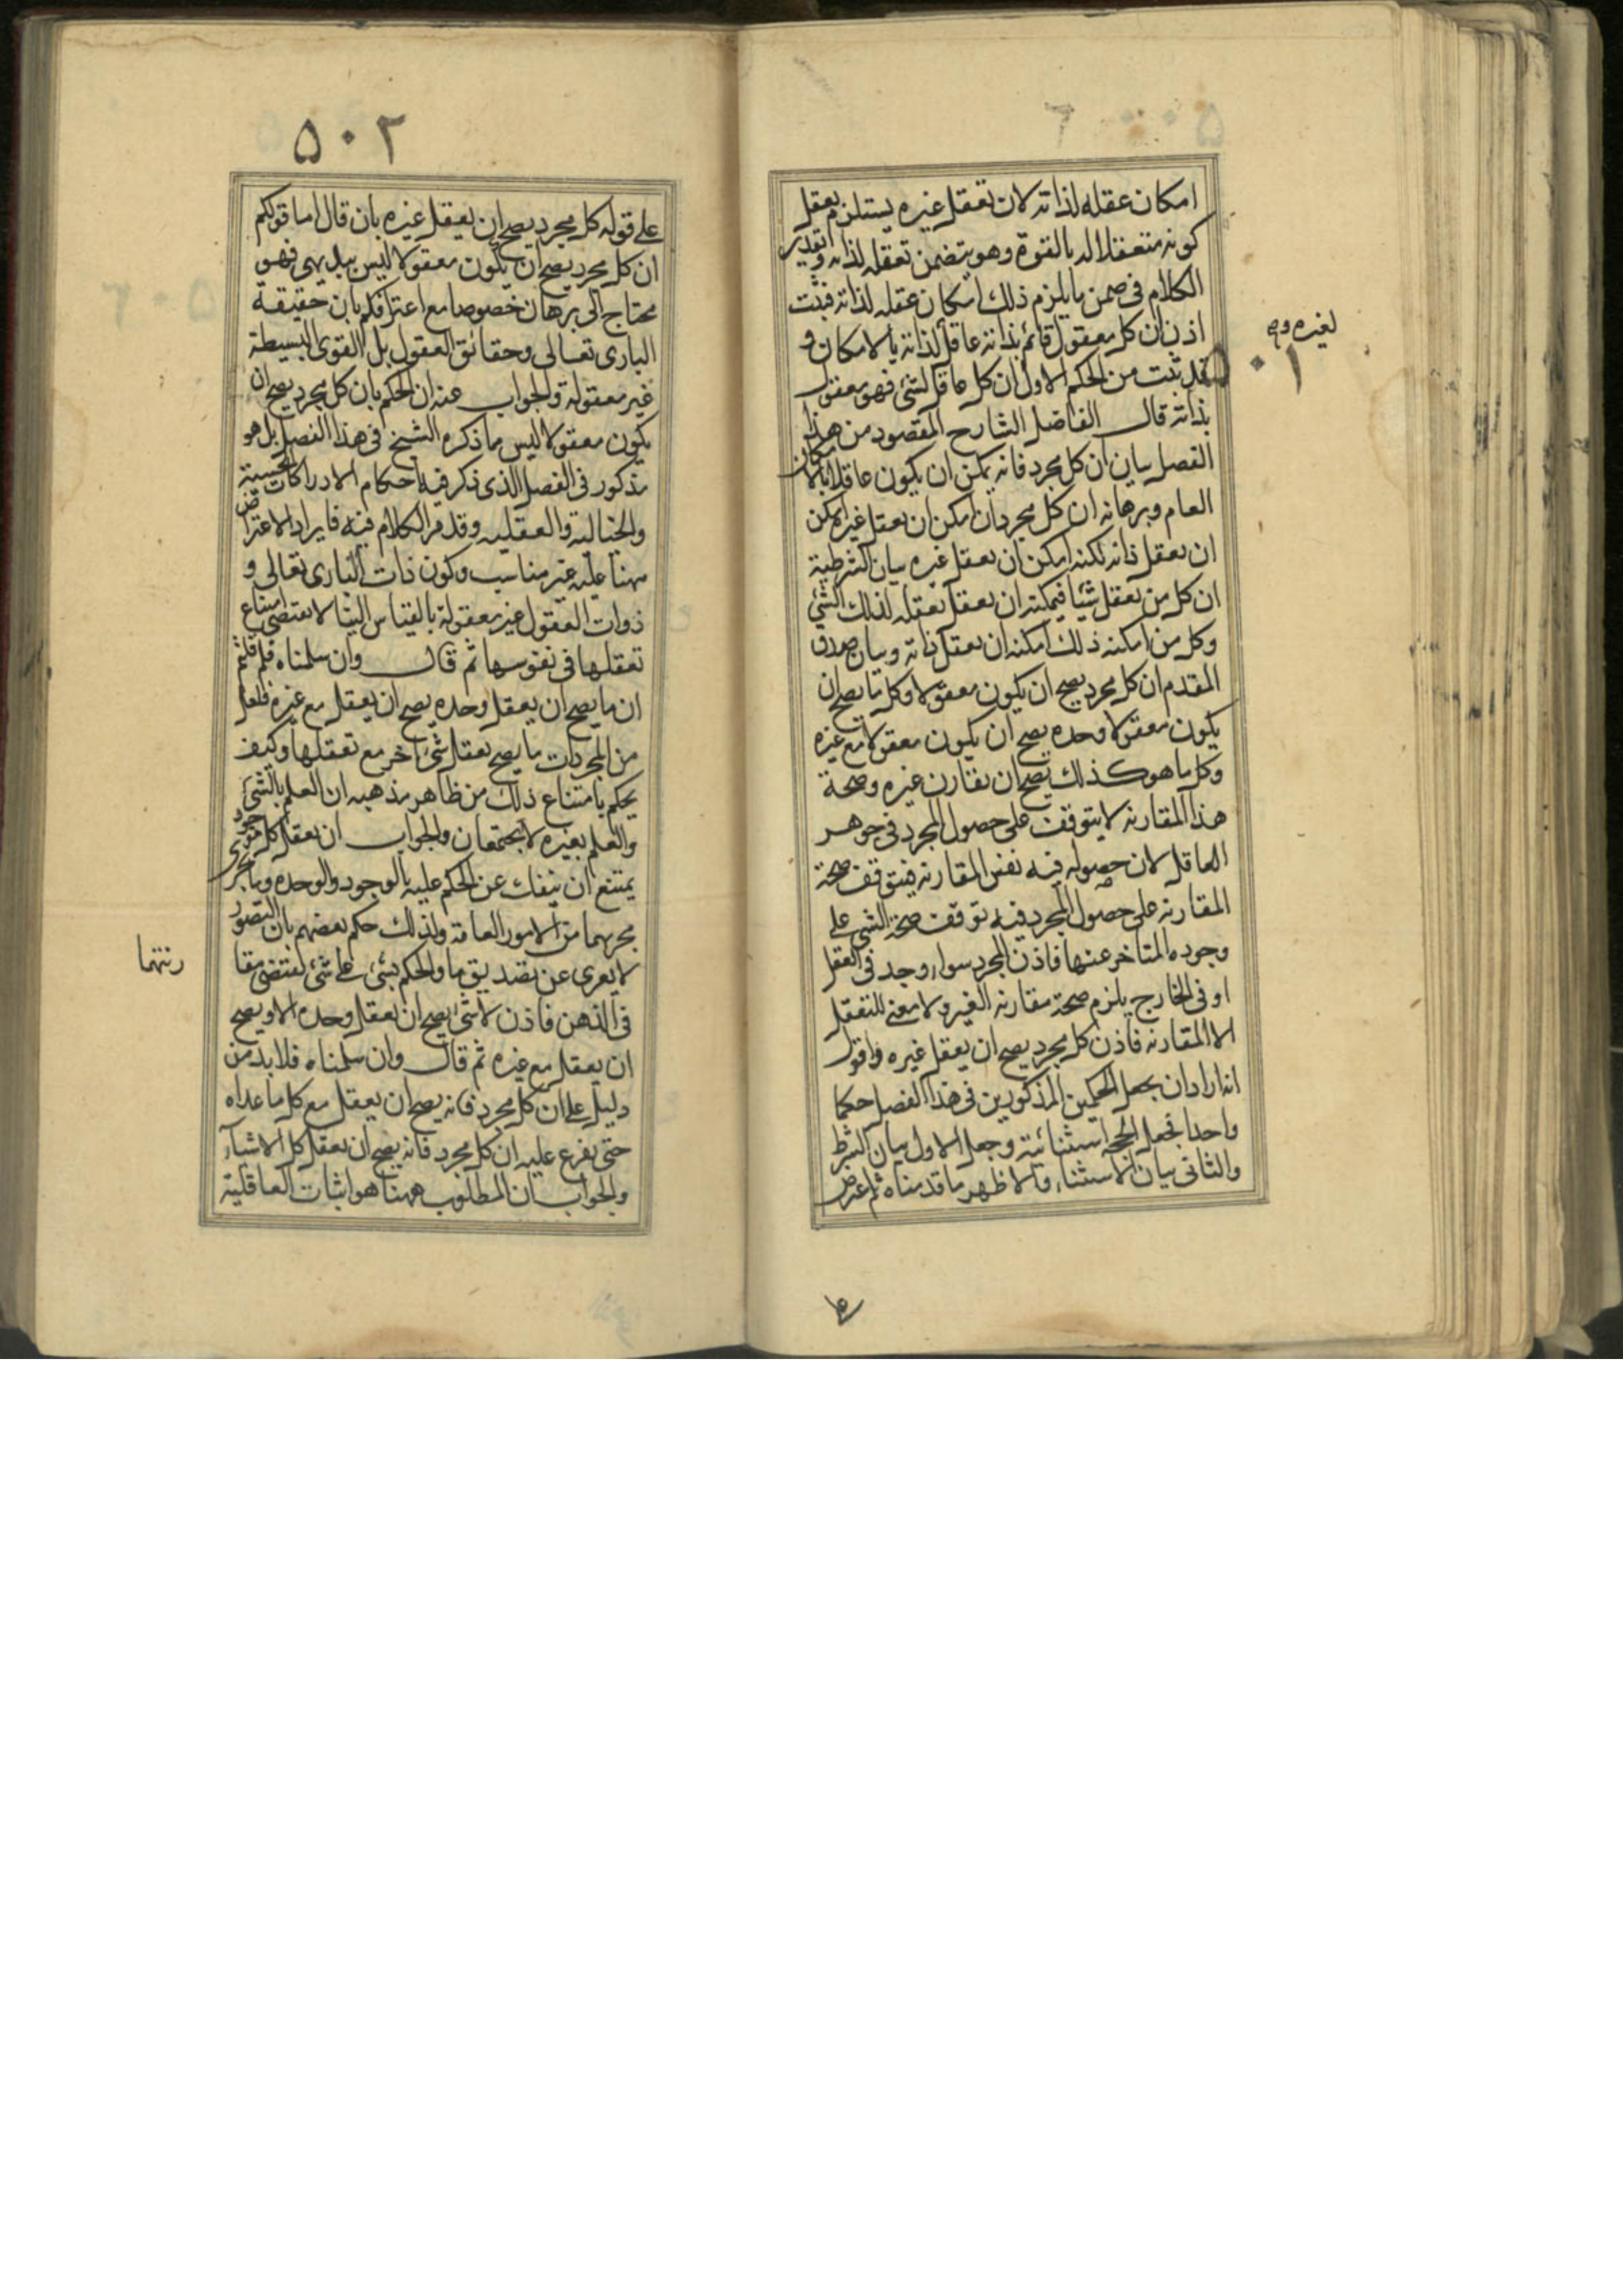 امكان عقله لذاته لان تعقل غيره يستلزم تعقل
كونه متعقلا له بالقوة وهو يتضمن تعقله لذاته وتقدير
الكلام فى ضمن ما يلزم ذلك امكان عقله لذاته فثبت
اذن ان كل معقول قائم بذاته عاقل لذاته بالامكان و
لغيره
قد ثبت من الحكم الاول ان كل عاقل لشئ فهو معقول
بذاته قال الفاضل الشارح المقصود من هذا
الفصل بيان ان كل مجرد فانه يمكن ان يكون عاقلا بالامكان
العام وبرهانه ان كل مجرد ان امكن ان يعقل غيره امكن
ان يعقل ذاته لكنه امكن ان يعقل غيره بيان الشرطية
ان كل من يعقل شيئا فيمكنه ان يعقل تعقله لذلك الشئ
وكل من امكنه ذلك امكنه ان يعقل ذاته وبيان صدق
المقدم ان كل مجرد يصح ان يكون معقولا وكل ما يصح ان
يكون معقولا وحده يصح ان يكون معقولا مع غيره
وكل ما هو كذلك يصح ان يقارن غيره وصحة
هذا المقارنه لا يتوقف على حصول المجرد فى جوهر
العاقل لان حصوله فيه نفس المقارنه فيتوقف صحة
المقارنه على حصول المجرد فيه توقف صحة الشى على
وجوده المتاخر عنها فاذن المجرد سواء وجد فى العقل
او فى الخارج يلزم صحة مقارنه الغير ولا معنى للتعقل
الا المقارنه فاذن كل مجرد يصح ان يعقل غيره واقول
انه اراد ان يجعل الحكمين المذكورين فى هذا الفصل حكما
واحدا فجعل الحجه استثنائية وجعل الاول بيان الشرط
والثانى بيان الاستثناء والاظهر ما قدمناه ثم اعترض
٥٠٢
على قوله كل مجرد يصح ان يعقل غيره بان قال اما قولكم
ان كل مجرد يصح ان يكون معقولا ليس ببديهى فهو
محتاج الى برهان خصوصا مع اعترافكم بان حقيقة
البارى تعالى وحقائق العقول بل القوى البسيطة
غير معقولة والجواب عنه ان الحكم بان كل مجرد يصح ان
يكون معقولا ليس ما ذكره الشيخ فى هذا الفصل بل هو
مذكور فى الفصل الذى ذكر فيه احكام الادراكات الحسية
والخيالية والعقليه وقد مر الكلام فيه فايراد الاعتراض
ههنا عليه غير مناسب وكون ذات البارى تعالى و
ذوات العقول غير معقولة بالقياس الينا لا يقتضى امتناع
تعقلها فى نفوسها ثم قال وان سلمناه فلم قلتم
ان ما يصح ان يعقل وحده يصح ان يعقل مع غيره فلعل
من المجردات ما يصح تعقل شئ اخر مع تعقلها وكيف
يحكم بامتناع ذلك من ظاهر مذهبه ان العلم بالشئ
والعلم بغيره لا يجتمعان والجواب ان تعقل كل موجود
يمتنع ان ينفك عن الحكم عليه بالوجود والوحده وما يجرى
مجريهما من الامور العامة ولذلك حكم بعضهم بان التصور
لا يعرى عن تصديق ما والحكم بشئ على شئ يقتضى مقا
رنتهما
فى الذهن فاذن لا شئ يصح ان يعقل وحده الا ويصح
ان يعقل مع غيره ثم قال وان سلمناه فلا بد من
دليل على ان كل مجرد فانه يصح ان يعقل مع كل ما عداه
حتى يفرع عليه ان كل مجرد فانه يصح ان يعقل كل الاشياء
والجواب ان المطلوب ههنا هو اثبات العاقلية